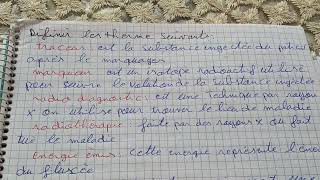 Definir les therme suivants:
traceur est la substance injectée du patien
après le marquager
marqueur est un isotope radioactif utilise
pour suivre le volution de la substance injectée
radio diagnostic est une technique par rayon
x on utilise pour trouver le lieu de maladie
radiothérapie faite par des rayons x ou fait
tue le maladie
énergie émis: cette énergie représente l'éner
du flux ce